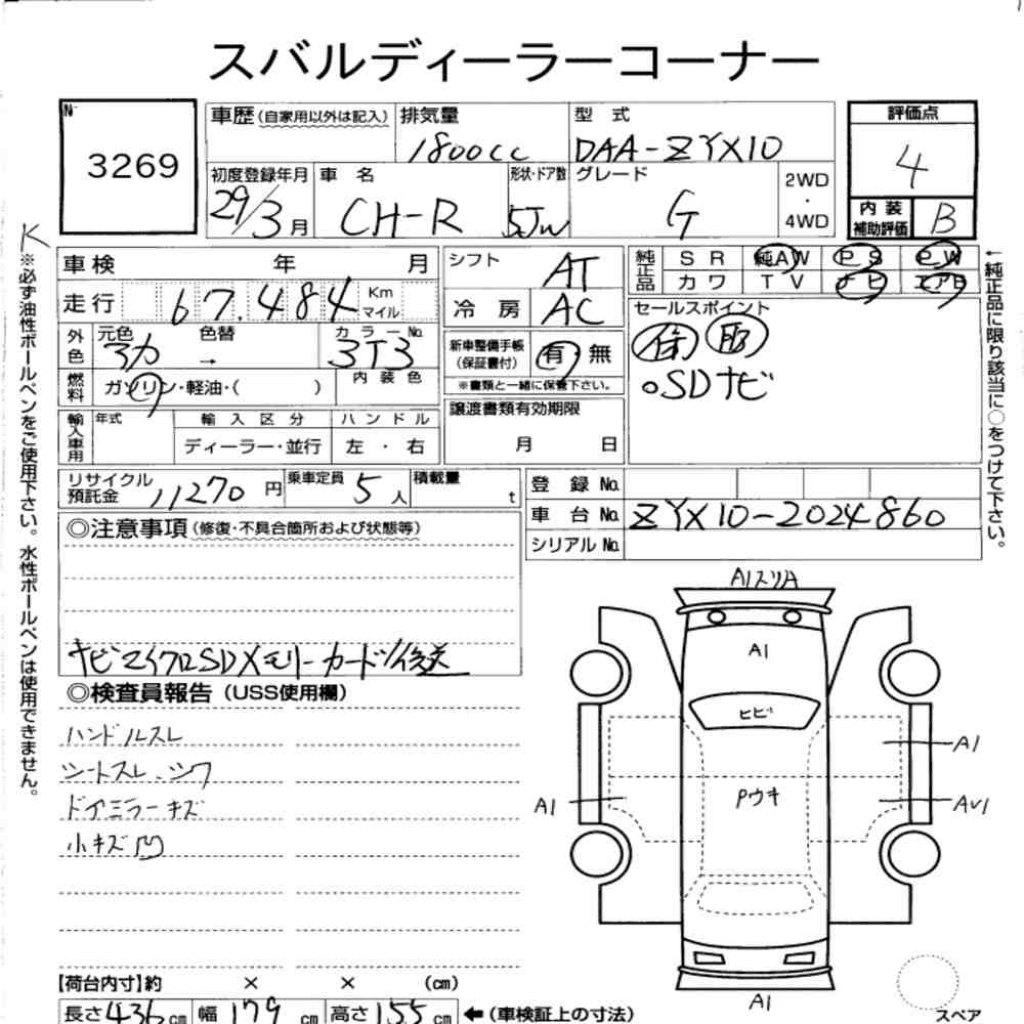 スバルディーラーコーナー
No 3269
車歴 (自家用以外は記入)
排気量 1800cc
型式 DAA-ZYX10
評価点 4
初度登録年月 29/3月
車名 CH-R
形状・ドア数 5Jw
グレード G
2WD・4WD
内装補助評価 B
K
※必ず油性ボールペンをご使用下さい。水性ボールペンは使用できません。
車検 年 月
シフト AT
純正品 SR 純AW PS PW
カワ TV ナビ エアB
←純正品に限り該当に○をつけて下さい。
走行 67.484 Km マイル
冷房 AC
セールスポイント
SDナビ
外色 元色 色替 → カラーNo. 3T3
新車整備手帳(保証書付) 有・無
※書類と一緒に保管下さい。
燃料 ガソリン・軽油・( ) 内装色
譲渡書類有効期限 月 日
輸入車用 年式 輸入区分 ハンドル
ディーラー・並行 左・右
リサイクル預託金 11270円
乗車定員 5人
積載量 t
登録No.
車台No. ZYX10-2024860
シリアルNo.
◎注意事項(修復・不具合箇所および状態等)
ナビマイクロSDメモリーカード後送
◎検査員報告 (USS使用欄)
ハンドルスレ
シートスレ、シワ
ドアミラーキズ
小キズ凹
A1スリA
A1
ヒビ
A1
Pウキ
A1
AV1
A1
スペア
【荷台内寸】約 × × (cm)
長さ436cm 幅179cm 高さ155cm ←(車検証上の寸法)